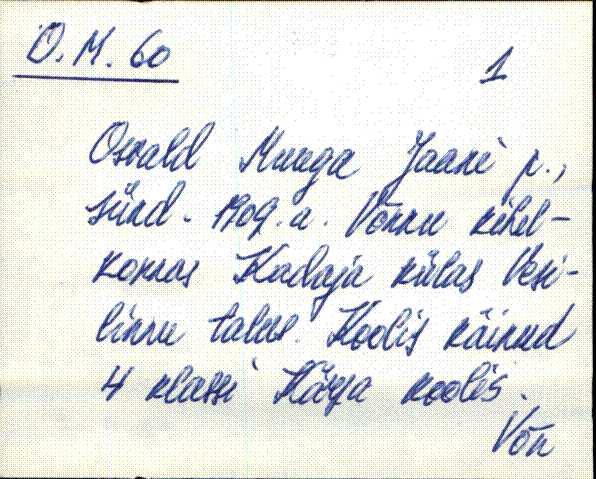 O.M. 60
1
Osvald Muuga Jaani p.,
sünd. 1909. a. Võnnu kihel-
konnas Kadaja külas Vesi-
linnu talus. Koolis käinud
4 klassi Kärsa koolis.
Võn